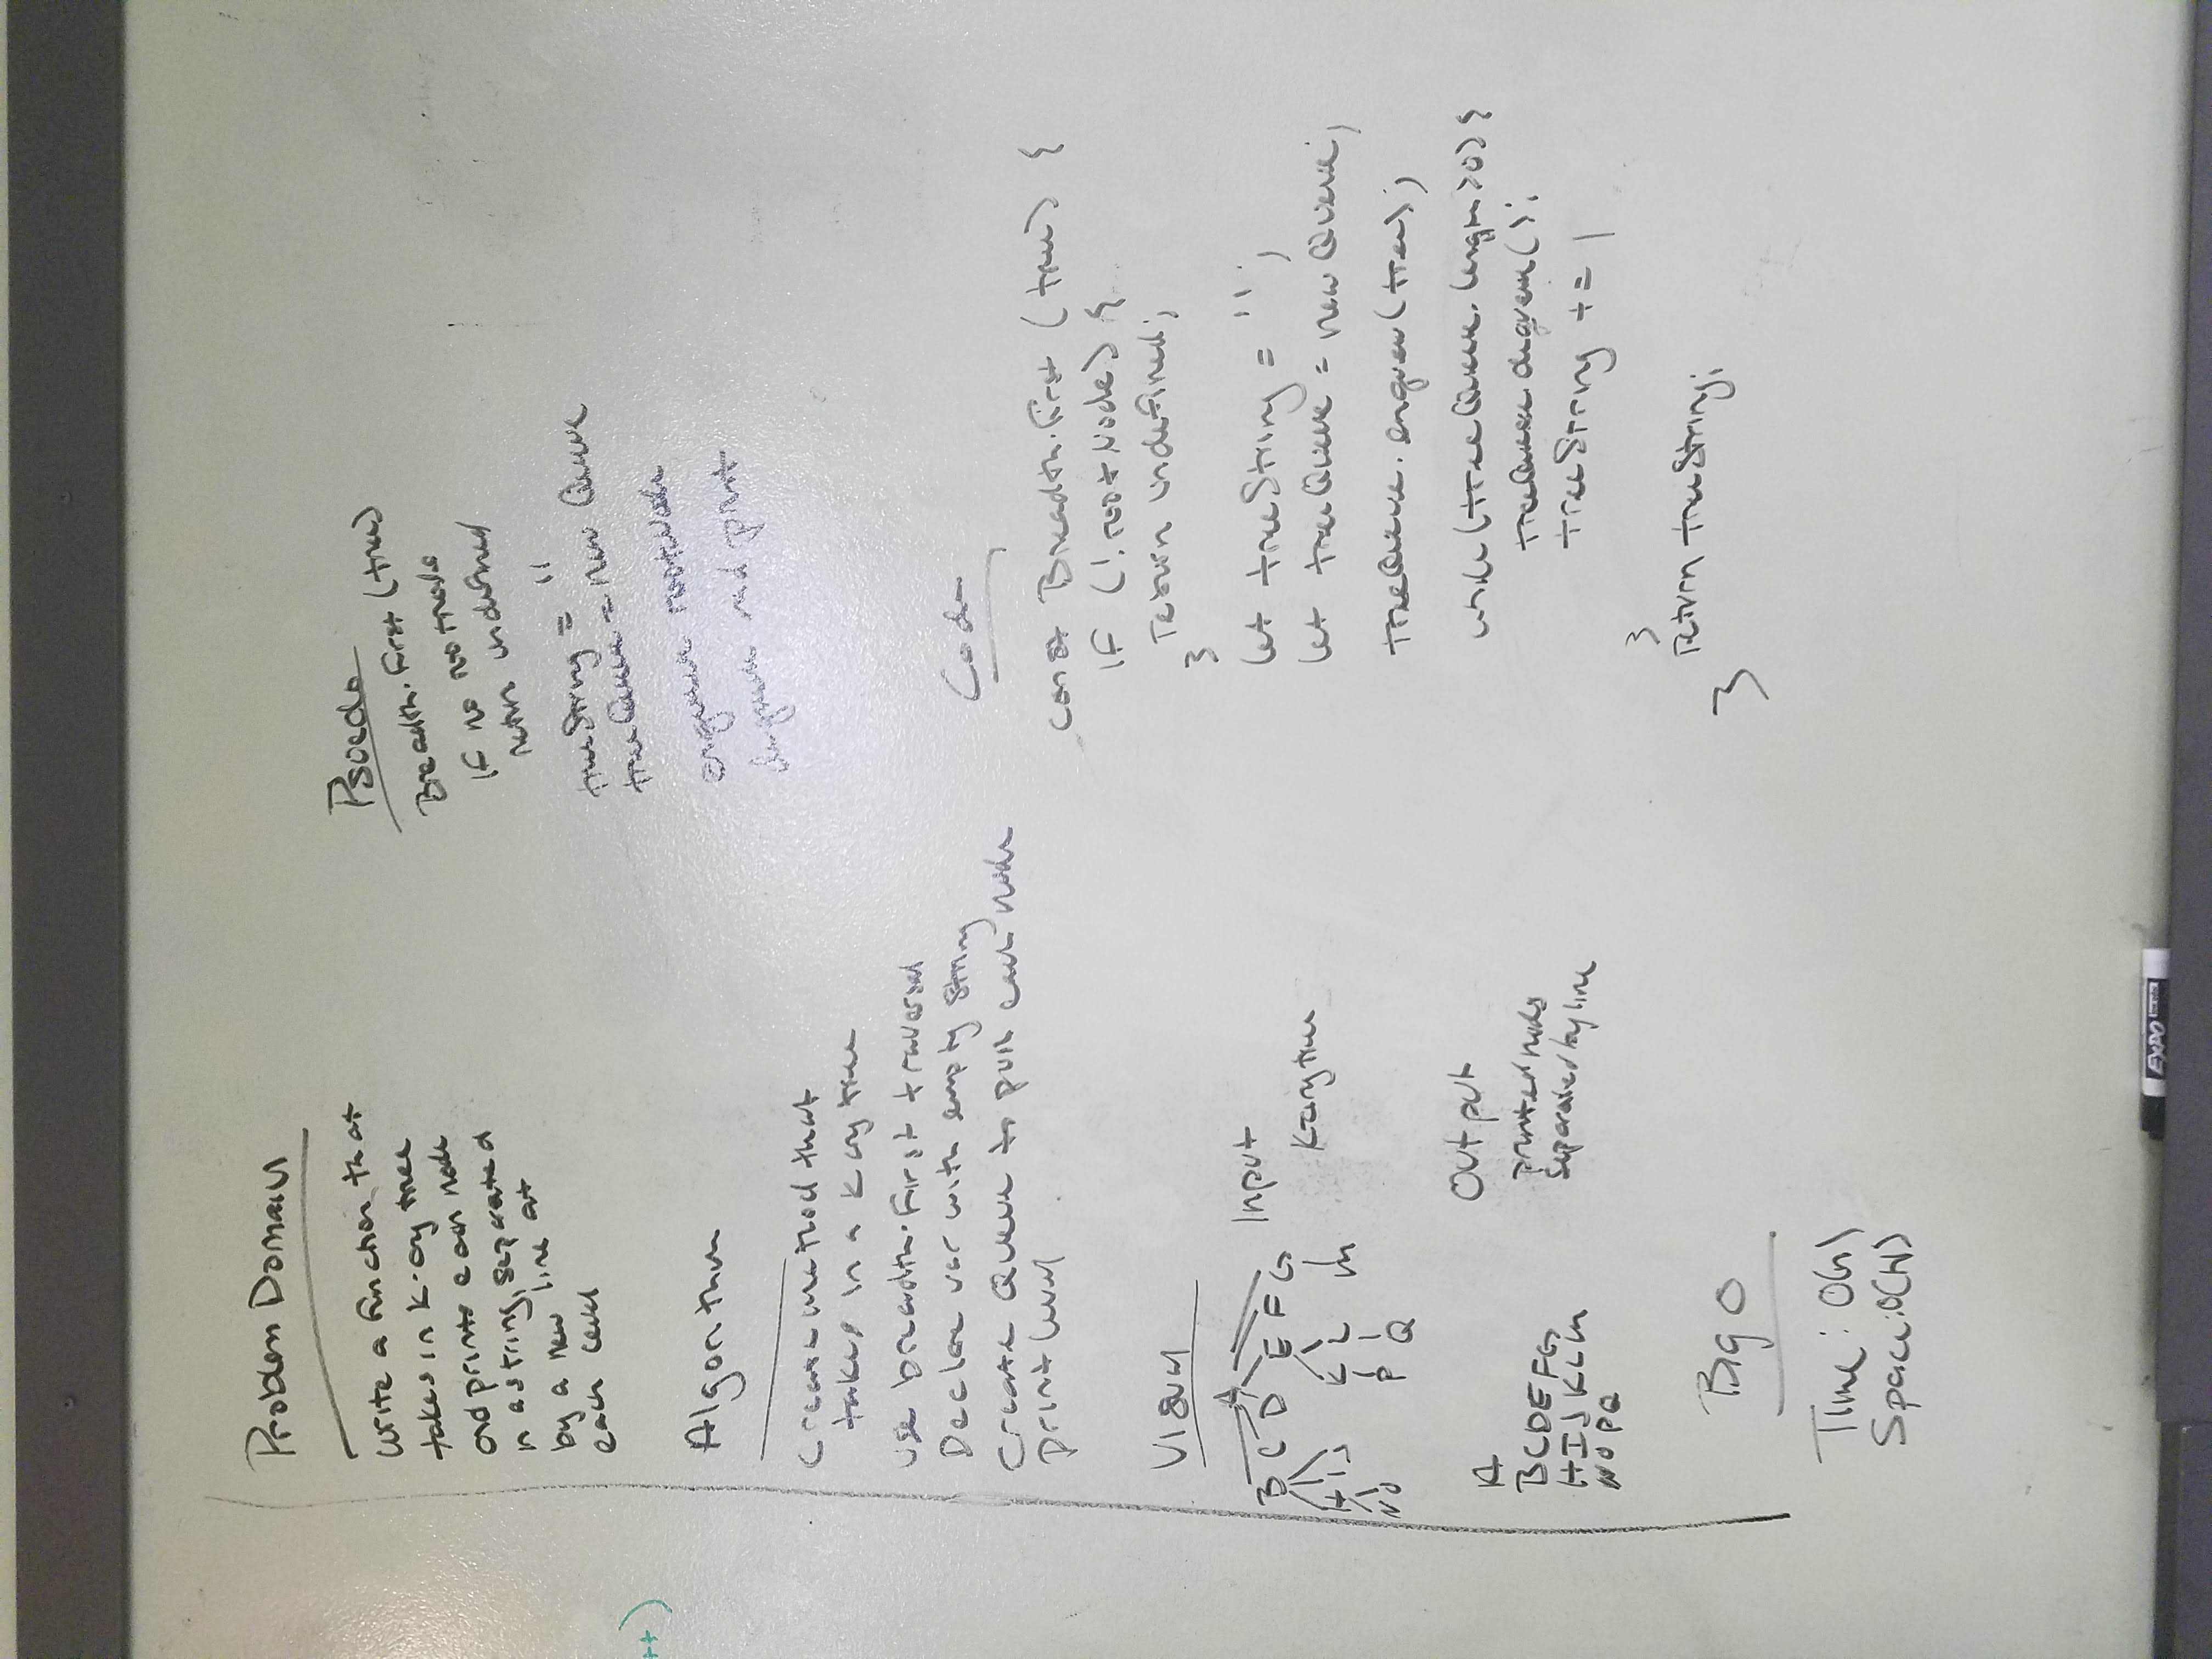 ++)
Problem Domain
Write a function that
takes in k-ary tree
and prints each node
in a string, separated
by a new line at
each level
Algorithm
Create method that
takes in a k ary tree
use breadth-First traversal
Declare var with empty string
Create Queue to push each node
print level
Visual
A
B C D E F G
H I J K L M
N O P Q
Input
K-ary tree
A
B C D E F G
H I J K L M
N O P Q
Output
printed nodes
separated by line
Big O
Time: O(n)
Space: O(W)
Psoedo
Breadth-First (tree)
IF no rootnode
return undefined
treeString = ''
treeQueue = new Queue
enqueue rootNode
dequeue and print
Code
const Breadth-First (tree) {
IF (!rootNode) {
return undefined;
}
let treeString = '';
let treeQueue = new Queue;
treeQueue.enqueue(tree);
while(treeQueue.length>0) {
treeQueue.dequeue();
treeString +=
}
return treeString;
}
EXPO